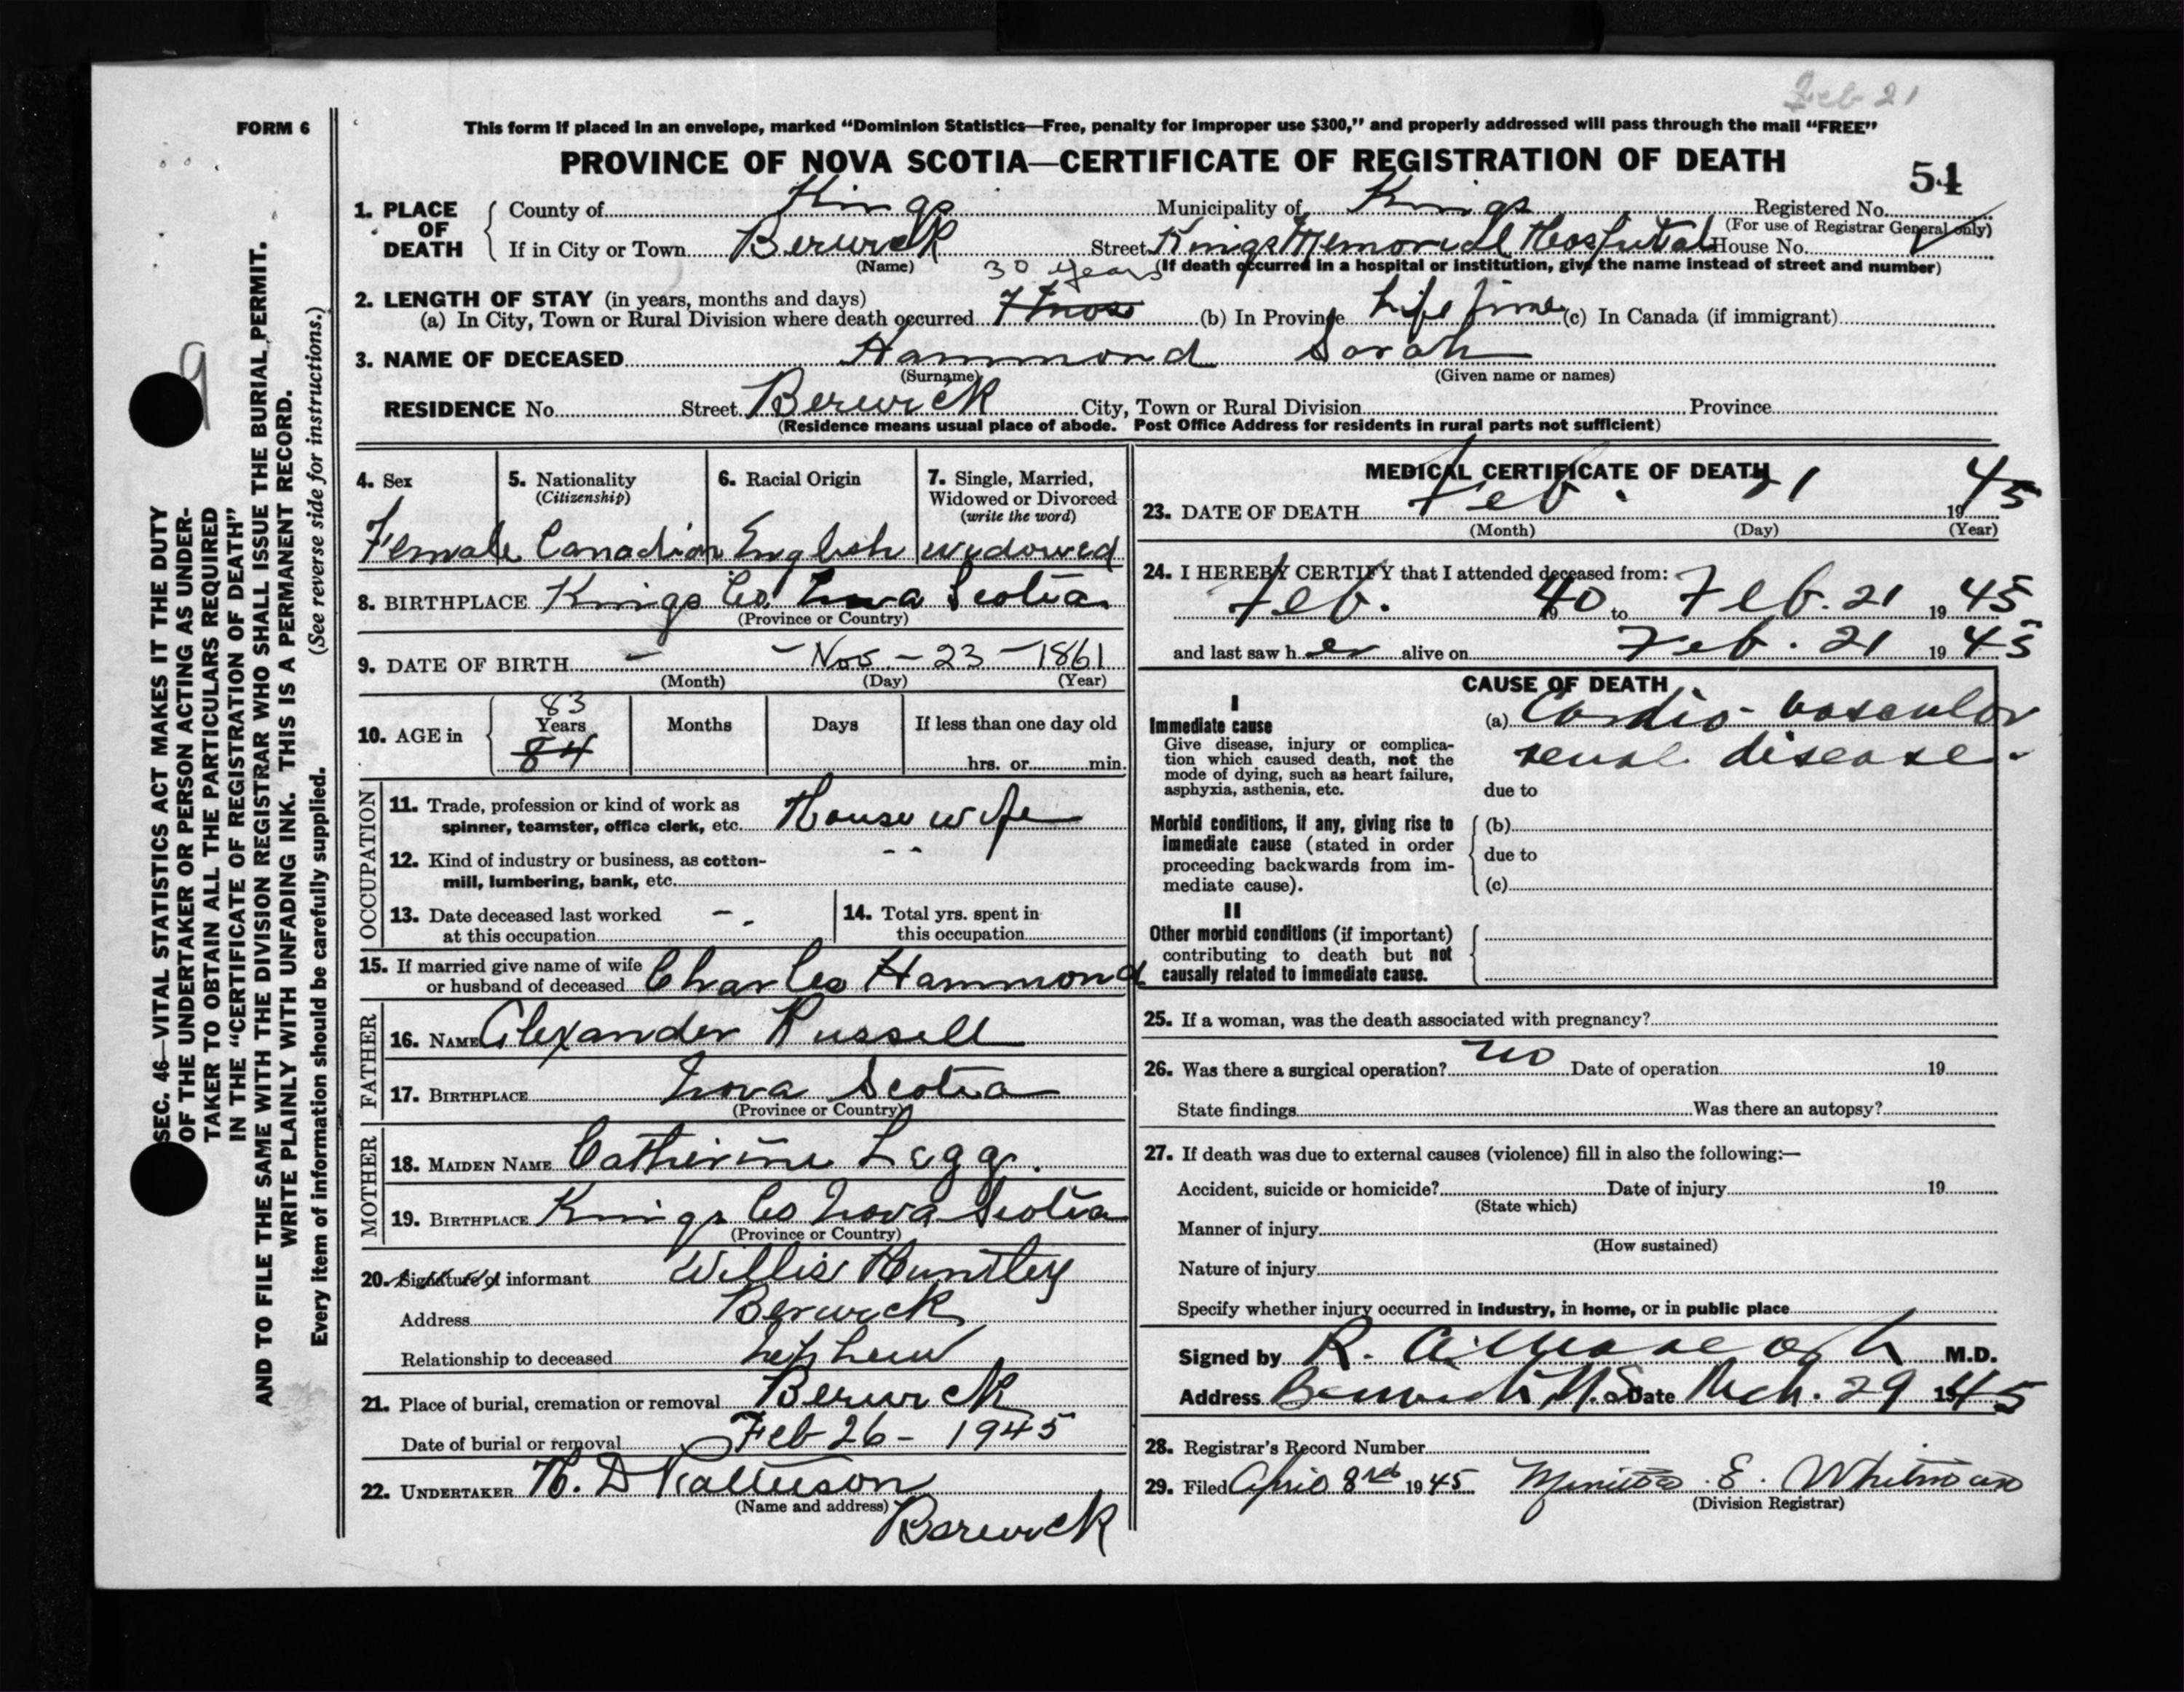 Feb 21
FORM 6
This form if placed in an envelope, marked “Dominion Statistics—Free, penalty for improper use $300,” and properly addressed will pass through the mail “FREE”
PROVINCE OF NOVA SCOTIA—CERTIFICATE OF REGISTRATION OF DEATH
51
1. PLACE OF DEATH
County of Kings Municipality of Kings Registered No.
(For use of Registrar General only)
If in City or Town Berwick Street Kings Memorial Hospital House No.
(Name) (If death occurred in a hospital or institution, give the name instead of street and number)
30 years
2. LENGTH OF STAY (in years, months and days)
(a) In City, Town or Rural Division where death occurred 7 mos (b) In Province Life Time (c) In Canada (if immigrant)
3. NAME OF DECEASED Hammond Sarah
(Surname) (Given name or names)
RESIDENCE No. Street Berwick City, Town or Rural Division Province
(Residence means usual place of abode. Post Office Address for residents in rural parts not sufficient)
4. Sex 5. Nationality (Citizenship) 6. Racial Origin 7. Single, Married, Widowed or Divorced (write the word)
Female Canadian English widowed
8. BIRTHPLACE Kings Co. Nova Scotia
(Province or Country)
9. DATE OF BIRTH – – Nov – 23 – 1861
(Month) (Day) (Year)
83
10. AGE in Years Months Days If less than one day old
84 hrs. or min.
OCCUPATION
11. Trade, profession or kind of work as
spinner, teamster, office clerk, etc. House wife
12. Kind of industry or business, as cotton- - -
mill, lumbering, bank, etc.
13. Date deceased last worked at this occupation – . 14. Total yrs. spent in this occupation
15. If married give name of wife
or husband of deceased Charles Hammond
FATHER
16. NAME Alexander Russell
17. BIRTHPLACE Nova Scotia
(Province or Country)
MOTHER
18. MAIDEN NAME Catherine Legg.
19. BIRTHPLACE Kings Co Nova Scotia
(Province or Country)
20. Signature of informant Willis Huntley
Address Berwick
Relationship to deceased nephew
21. Place of burial, cremation or removal Berwick
Date of burial or removal Feb 26 - 1945
22. UNDERTAKER
(Name and address)
Berwick
MEDICAL CERTIFICATE OF DEATH
23. DATE OF DEATH Feb. 21 1945
(Month) (Day) (Year)
24. I HEREBY CERTIFY that I attended deceased from:
Feb. 1940 to Feb. 21 1945
and last saw her alive on Feb. 21 1945
CAUSE OF DEATH
I
Immediate cause (a) Cardio-vascular
Give disease, injury or complica-
tion which caused death, not the renal disease.
mode of dying, such as heart failure,
asphyxia, asthenia, etc. due to
Morbid conditions, if any, giving rise to (b)
immediate cause (stated in order due to
proceeding backwards from im-
mediate cause). (c)
II
Other morbid conditions (if important)
contributing to death but not
causally related to immediate cause.
25. If a woman, was the death associated with pregnancy?
26. Was there a surgical operation? no Date of operation 19
State findings Was there an autopsy?
27. If death was due to external causes (violence) fill in also the following:—
Accident, suicide or homicide? Date of injury 19
(State which)
Manner of injury
(How sustained)
Nature of injury
Specify whether injury occurred in industry, in home, or in public place
Signed by M.D.
Address Berwick N.S. Date Mch. 29 1945
28. Registrar's Record Number
29. Filed April 8 1945 E. Whitman
(Division Registrar)
9
SEC. 46—VITAL STATISTICS ACT MAKES IT THE DUTY
OF THE UNDERTAKER OR PERSON ACTING AS UNDER-
TAKER TO OBTAIN ALL THE PARTICULARS REQUIRED
IN THE “CERTIFICATE OF REGISTRATION OF DEATH”
AND TO FILE THE SAME WITH THE DIVISION REGISTRAR WHO SHALL ISSUE THE BURIAL PERMIT.
WRITE PLAINLY WITH UNFADING INK. THIS IS A PERMANENT RECORD.
Every item of information should be carefully supplied. (See reverse side for instructions.)